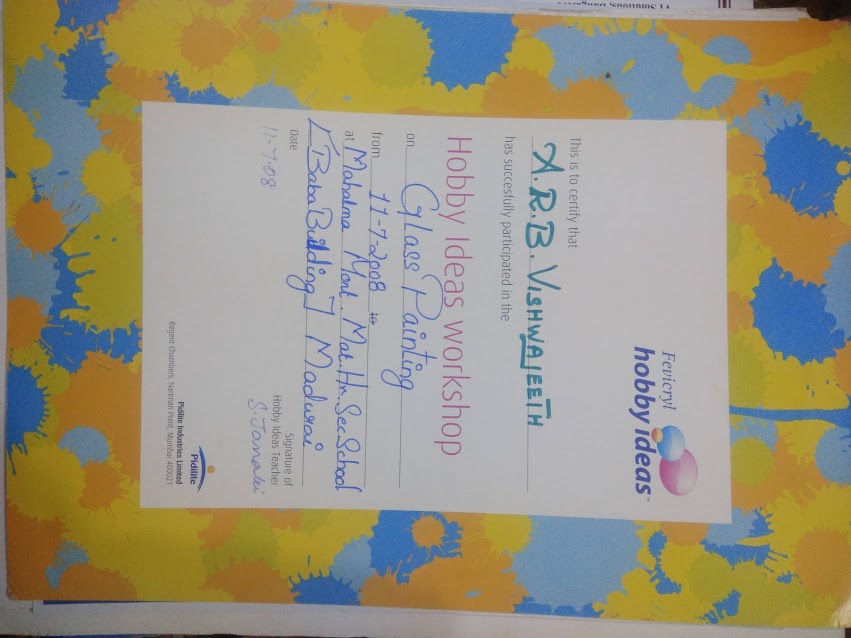 Fevicryl
hobby ideas™
This is to certify that
A.R.B. VISHWAJEETH
has succesfully participated in the
Hobby Ideas workshop
on Glass Painting
from 11-7-2008 to
at Mahatma Mont. Mat. Hr. Sec School
[Baba Building] Madurai
Date
11.7.08
Signature of
Hobby Ideas Teacher
S. Janaki
Pidilite
Pidilite Industries Limited
Regent Chambers, Nariman Point, Mumbai 400021